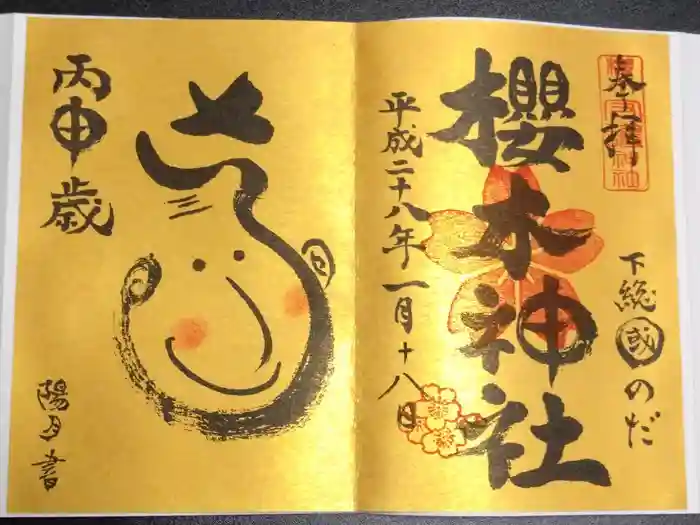 奉拝
下総國のだ
櫻木神社
平成二十八年一月十八日
丙申歳
陽月書